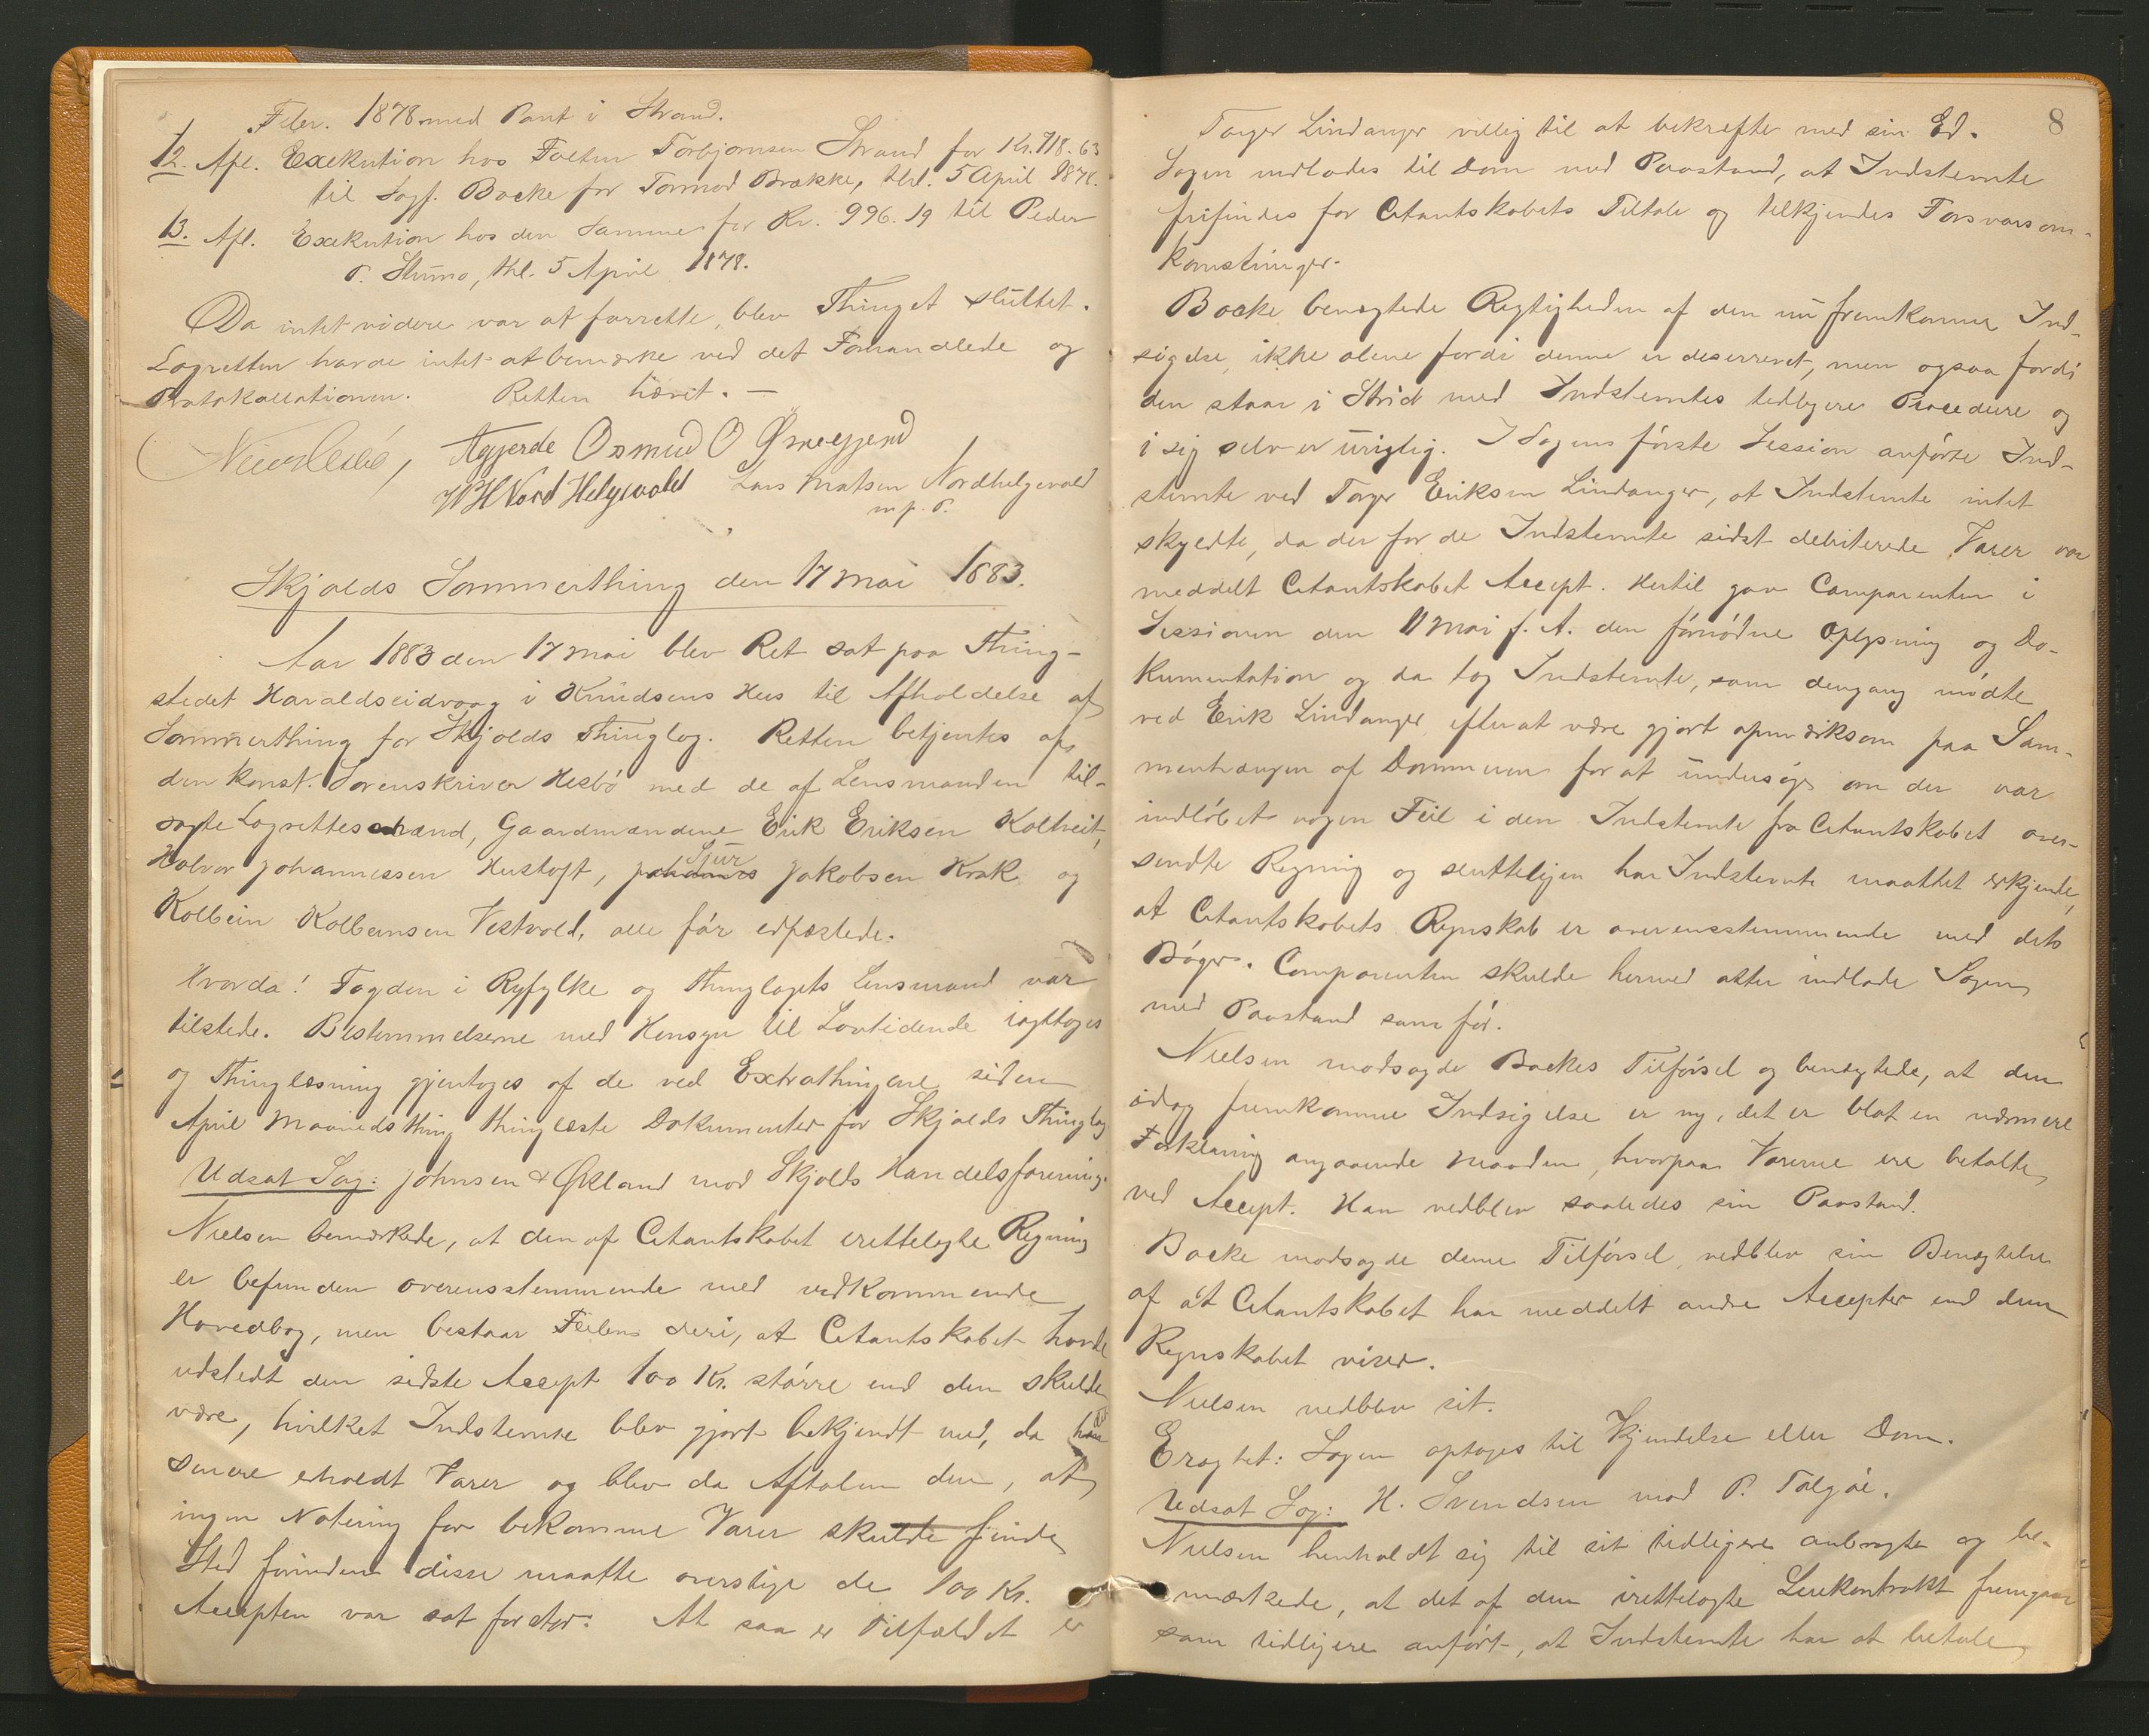 Febr. 1878 med Pant i Strand.
12. Afl. Exekution hos Tolten Torbjørnsen Strand for Kr. 718.63
til Sagf. Bocke for Tormod Brække, thl. 5 April 1878.
13. Afl. Exekution hos den Samme for Kr. 996.19 til Peder
P. Stumo, thl. 5 April 1878.
Da intet videre var at forrette, blev Thinget sluttet.
Lagretten havde intet at bemærke ved det Forhandlede og
Protokollationen. Retten hævet. —
Osmud O
W H Nord Helgevold Lars Matsen Nordhelgevold
m. p. P.
Skjolds Sommerthing den 17 Mai 1883.
Aar 1883 den 17 Mai blev Ret sat paa Thing-
stedet Haraldseidvaag i Knudsens Hus til Afholdelse af
Sommerthing for Skjolds Thinglag. Retten betjentes af
den konst. Sorenskriver Hesbó med de af Lensmanden til-
sagte Lagrettesmænd, Gaardmændene Erik Eriksen Kolltveit,
Halvor Johannessen Hustoft, Johannes Sjur Jakobsen Krak og
Kolbein Kolbeinsen Vestvold, alle fór edfæstede.
Hvorda! Fogden i Ryfylke og Thinglagets Lensmand var
tilstede. Bestemmelserne med Hensyn til Lovtidende iagttoges
og Thinglæsning gjentoges af de ved Extrathingene siden
April Maanedsthing thinglæste Dokumenter for Skjolds Thinglag
Udsat Sag: Johnsen & Økland mod Skjolds Handelsforening.
Nielsen bemærkede, at den af Citantskabet irettelagte Regning
er befunden overensstemmende med vedkommende
Hovedbog, men bestaar Feilen deri, at Citantskabet havde
udstedt den sidste Accept 100 Kr. stórre end den skulde
være, hvilket Indstevnte blev gjort bekjendt med, da det
senere erholdt Varer og blev da Aftalen den, at
ingen Notering for bekomne Varer skulde finde
Sted forinden disse maatte overstige de 100 Kr.
Accepten var sat for stor. At saa er Tilfældet er
8
Torger Lindanger villig til at bekrefte med sin Ed.
Sagen indlodes til Dom med Paastand, at Indstevnte
frifindes for Citantskabets Tiltale og tilkjendes Forsvarsom-
kostninger.
Bocke benegtede Rigtigheden af den nu fremkomne Ind-
sigelse, ikke alene fordi denne er deserveret, men ogsaa fordi
den staar i Strid med Indstevntes tidligere Procedure og
i sig selv er urigtig. I Sagens fórste Session anfórte Ind-
stevnte ved Torger Eriksen Lindanger, at Indstevnte intet
skyldte, da der for de Indstevnte sidst debiterede Varer var
meddelt Citantskabet Accept. Hertil gav Comparenten i
Sessionen den 11 Mai f. A. den fórnódne Oplysning og Do-
kumentation og da tog Indstevnte, som dengang módte
ved Erik Lindanger, efter at være gjort opmærksom paa Sam-
menhængen af Dommeren for at undersóge om der var
indlóbet nogen Feil i den Indstevnte fra Citantskabet over-
sendte Regning og sentteligen har Indstevnte maattet erkjende,
at Citantskabets Regnskab er overensstemmende med dets
Bóger. Comparenten skulde hermed atter indlade Sagen
med Paastand som fór.
Nielsen modsagde Bockes Tilfórsel og benegtede, at den
idag fremkomne Indsigelse er ny, det er blot en nærmere
Forklaring angaaende Maaden, hvorpaa Varerne ere betalte
ved Accept. Han vedblev saaledes sin Paastand.
Bocke modsagde denne Tilfórsel, vedblev sin Benegtelse
af at Citantskabet har meddelt andre Accepter end dem
Regnskabet viser.
Nielsen vedblev sit.
Eragtet: Sagen optages til Kjendelse eller Dom.
Udsat Sag: H. Svendsen mod P. Talgøe.
Nielsen henholdt sig til sit tidligere anbragte og be-
mærkede, at det af den irettelagte Leiekontrakt fremgaar
som tidligere anfórt, at Indstevnte har at betale